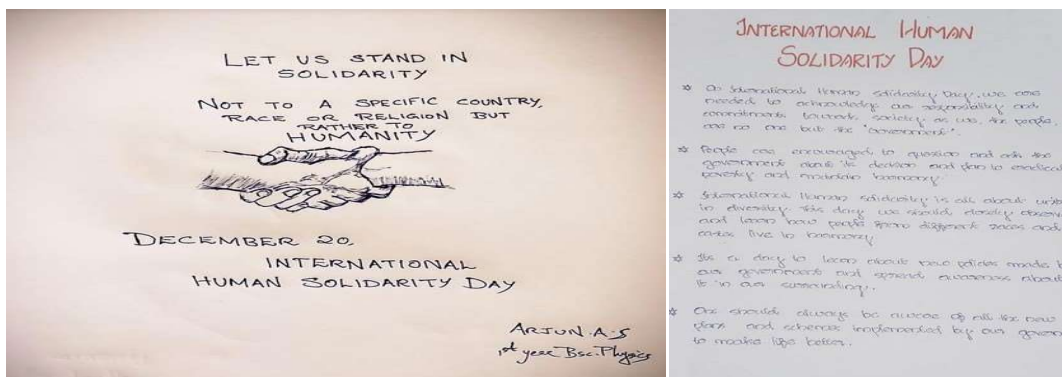 LET US STAND IN
SOLIDARITY
NOT TO A SPECIFIC COUNTRY,
RACE OR RELIGION BUT
RATHER TO
HUMANITY
DECEMBER 20,
INTERNATIONAL
HUMAN SOLIDARITY DAY
ARJUN.A.S
1st year Bsc.Physics
INTERNATIONAL HUMAN
SOLIDARITY DAY
On International Human solidarity Day, we are
needed to acknowledge our responsibility and
commitments towards society as we, the people,
are no one but the 'Government'.
People are encouraged to question and ask the
government about its decision and plan to eradicate
poverty and maintain harmony.
International Human solidarity is all about unity
in diversity. This day we should closely observe
and learn how people from different races and
castes live in harmony
Its a day to learn about new policies made b
our government and spread awareness about
it in our surrounding.
One should always be aware of all the new
plans and schemes implemented by our govern
to make life better.